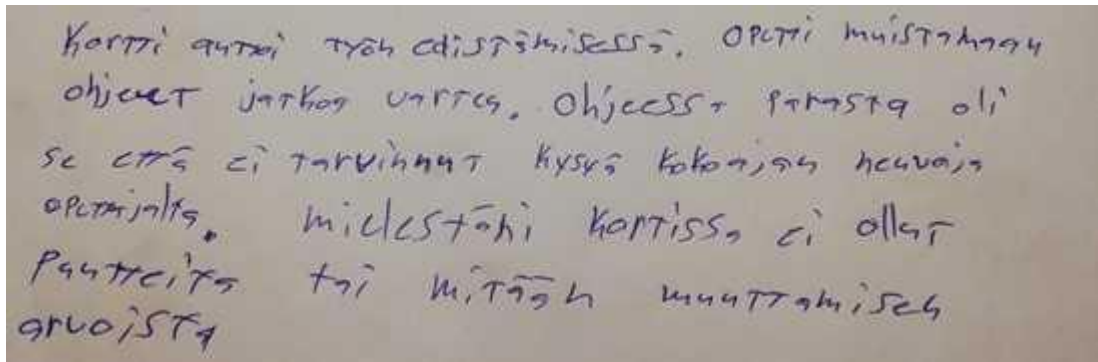 Kortti auttoi työn edistämisessä. Opetti muistamaan
ohjeet jatkoa varten. Ohjeessa parasta oli
se että ei tarvinnut kysyä kokoajan neuvoja
opettajalta. mielestäni kortissa ei ollut
puutteita tai mitään muuttamisen
arvoista